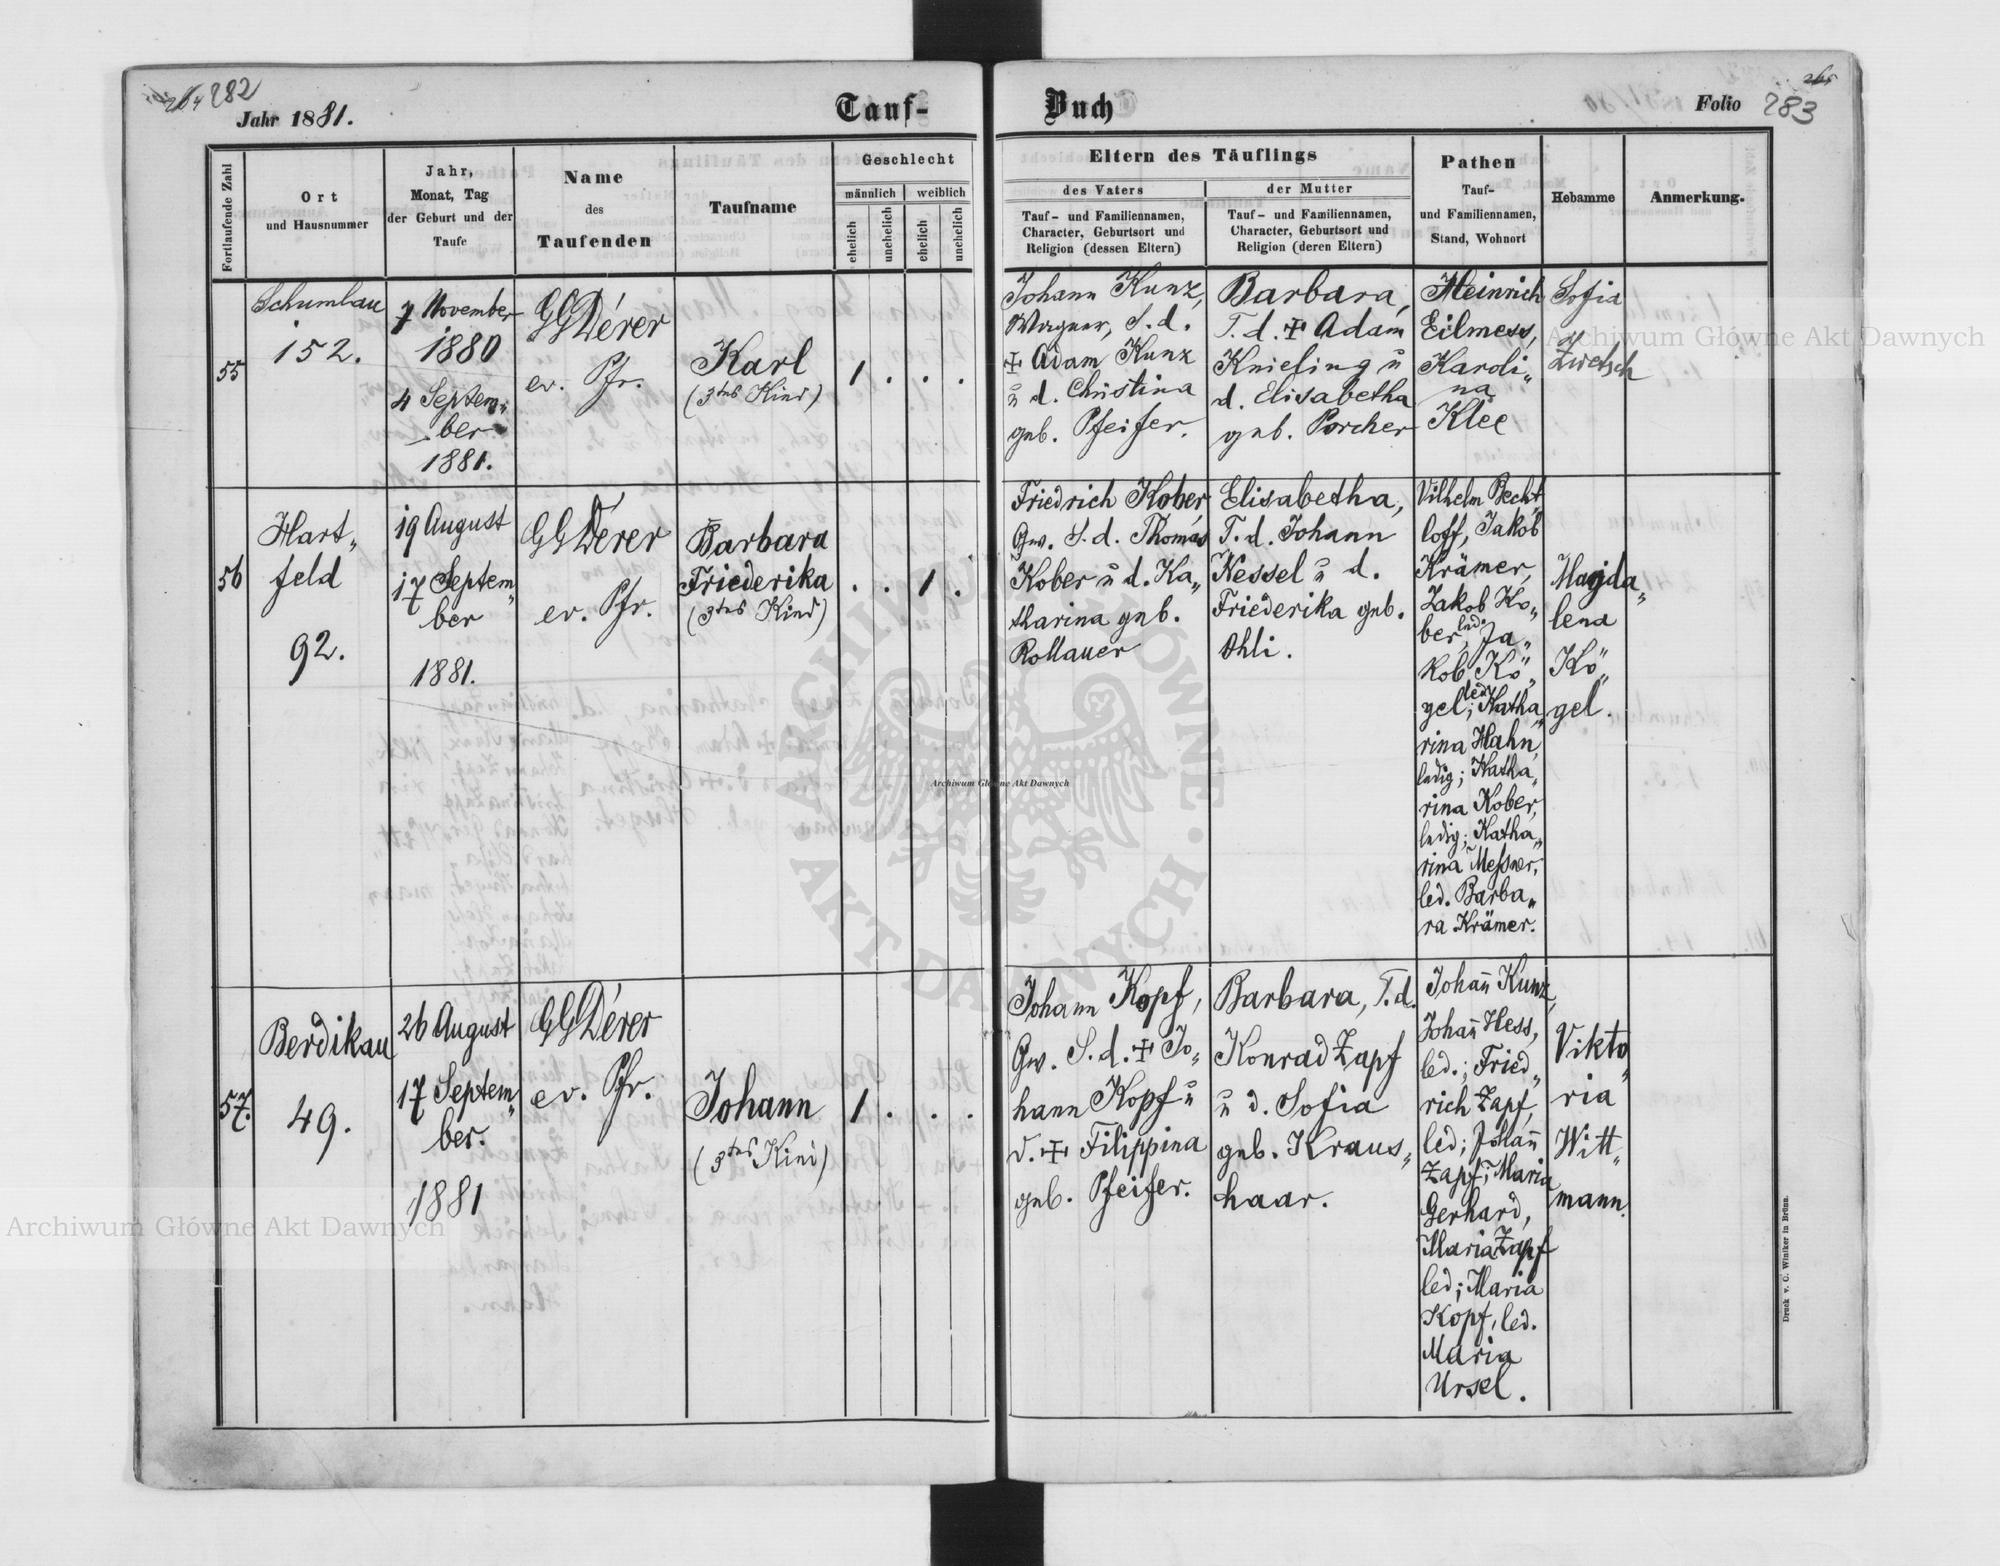 282
Jahr 1881.
Tauf-
Buch
Folio 283
Fortlaufende Zahl
Ort
und Hausnummer
Jahr,
Monat, Tag
der Geburt und der
Taufe
Name
des
Taufenden
Taufname
Geschlecht
männlich
weiblich
ehelich
unehelich
ehelich
unehelich
Eltern des Täuflings
des Vaters
Tauf- und Familiennamen,
Character, Geburtsort und
Religion (dessen Eltern)
der Mutter
Tauf- und Familiennamen,
Character, Geburtsort und
Religion (deren Eltern)
Pathen
Tauf-
und Familiennamen,
Stand, Wohnort
Hebamme
Anmerkung.
55
Schumlau
152.
7 November
1880
4 Septem„
ber
1881.
GGDérer
ev. Pfr.
Karl
(3tes Kind)
1 . . .
Johann Kunz,
Wagner, S. d.
+ Adam Kunz
u d. Christina
geb. Pfeifer.
Barbara,
T. d. + Adam
Knieling u
d. Elisabetha
geb. Porcher
Heinrich
Eilmess,
Karoli„
na
Klee
Sofia
Zwetsch
56
Hart„
feld
92.
19 August
17 Septem„
ber
1881.
GGDérer
ev. Pfr.
Barbara
Friederika
(3tes Kind)
. . 1 .
Friedrich Kober,
Gw. S. d. Thomas
Kober u d. Ka„
tharina geb.
Rollauer
Elisabetha,
T. d. Johann
Nessel u d.
Friederika geb.
Ohli.
Vilhelm Becht„
loff, Jakob
Krämer,
Jakob Ko„
ber, led. Ja„
kob Kö„
gel, led; Katha„
rina Hahn,
ledig; Katha„
rina Kober,
ledig; Katha„
rina Meßner,
led. Barba„
ra Krämer.
Magda„
lena
Kö„
gel.
57.
Berdikau
49.
26 August
17 Septem„
ber.
1881
GGDérer
ev. Pfr.
Johann
(3tes Kind)
1 . . .
Johann Kopf,
Gw. S. d. + Jo„
hann Kopf u
d. + Filippina
geb. Pfeifer.
Barbara, T. d.
Konrad Zapf
u d. Sofia
geb. Kraus„
haar.
Johan̄ Kunz,
Johan̄ Hess,
led.; Fried„
rich Zapf,
led; Johan̄
Zapf; Maria
Gerhard,
Maria Zapf
led; Maria
Kopf, led.
Maria
Ursel.
Vikto„
ria
Witt„
mann.
Druck v. C. Winiker in Brünn.
Archiwum Główne Akt Dawnych
Archiwum Główne Akt Dawnych
Archiwum Główne Akt Dawnych
ARCHIWUM GŁÓWNE · AKT DAWNYCH ·